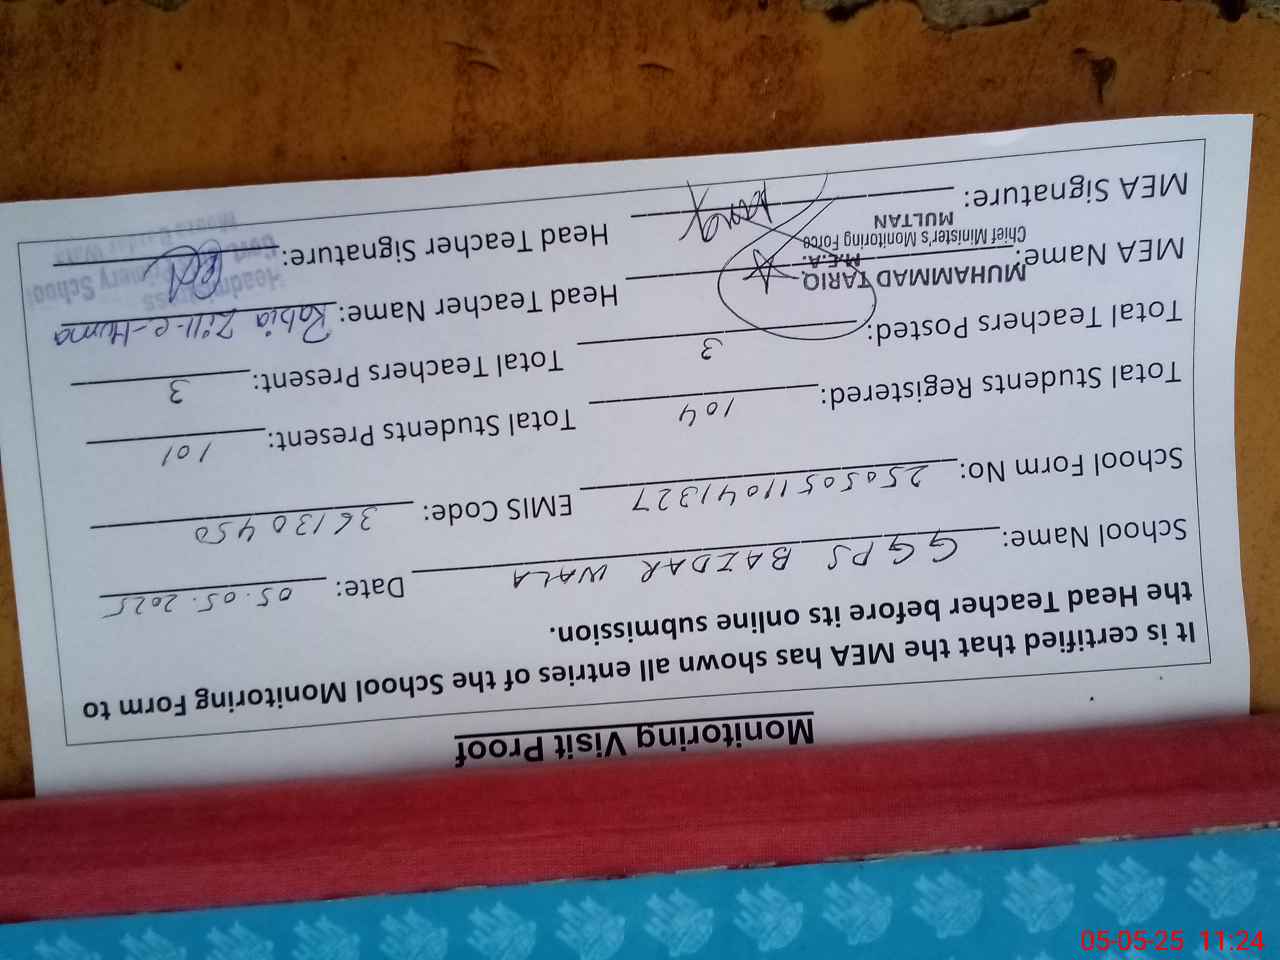 Monitoring Visit Proof
It is certified that the MEA has shown all entries of the School Monitoring Form to
the Head Teacher before its online submission.
School Name: GGPS BAZDAR WALA Date: 05.05.2025
School Form No: 25050511041327 EMIS Code: 36130450
Total Students Registered: 104 Total Students Present: 101
Total Teachers Posted: 3 Total Teachers Present: 3
MEA Name: MUHAMMAD TARIQ Head Teacher Name: Rabia Zill-e-Huma
M.E.A.
Chief Minister's Monitoring Force
MULTAN
Headmistress
Govt. Primary School
MEA Signature: Head Teacher Signature:
05-05-25 11:24